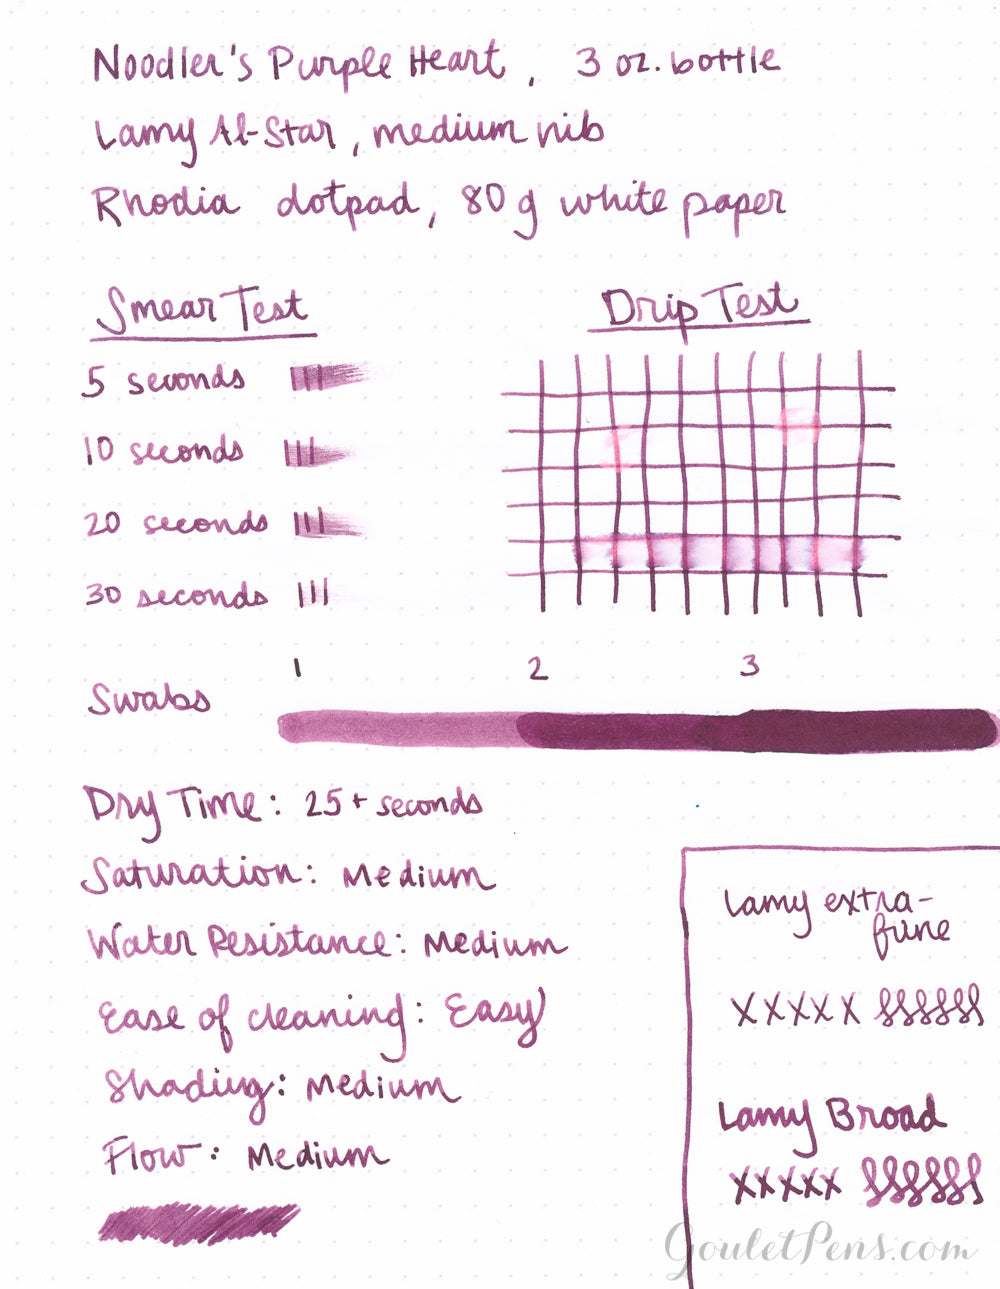 Noodler's Purple Heart, 3 oz. bottle
Lamy Al-Star, medium nib
Rhodia dotpad, 80 g white paper
Smear Test
5 seconds
10 seconds
20 seconds
30 seconds
Drip Test
Swabs
1 2 3
Dry Time: 25+ seconds
Saturation: Medium
Water Resistance: Medium
Ease of cleaning: Easy
Shading: Medium
Flow: Medium
Lamy extra-
fine
xxxxx
Lamy Broad
xxxxx
GouletPens.com